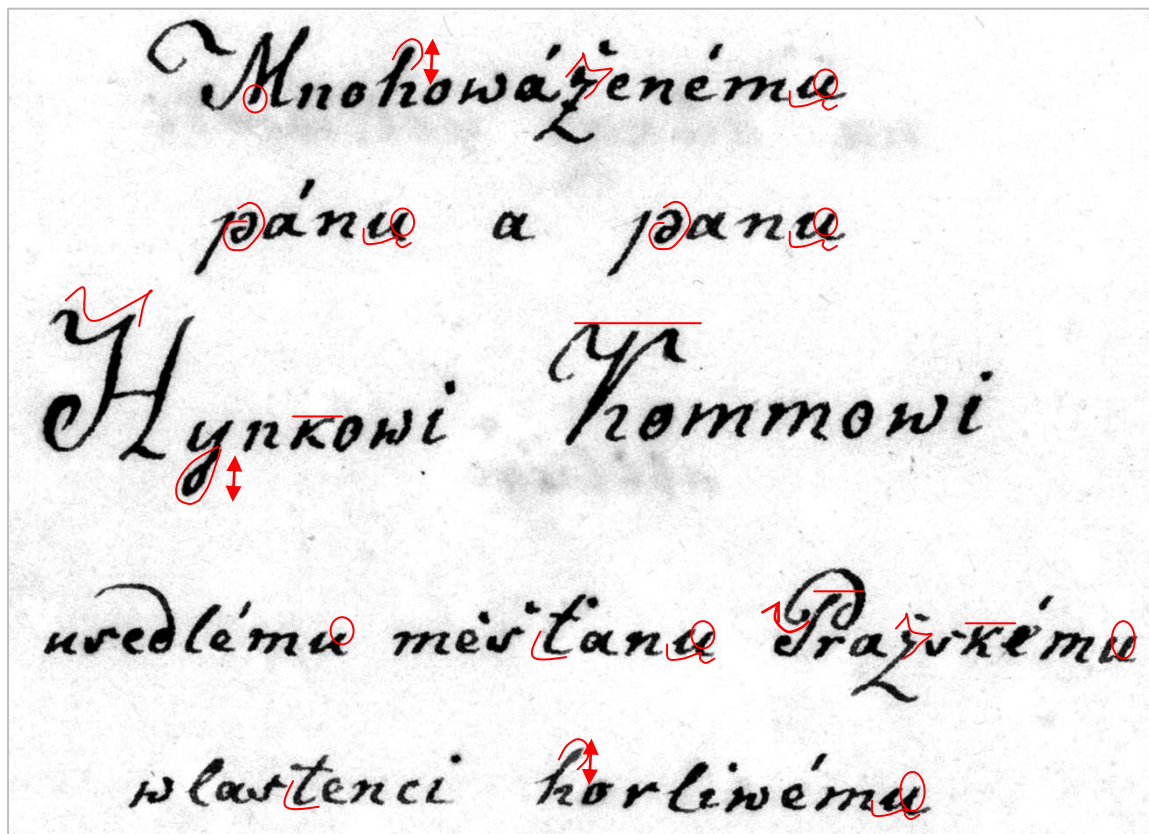 Mnohowáženému
pánu a panu
Hynkowi Kommowi
usedlému měsťanu Pražskému
wlastenci horliwému